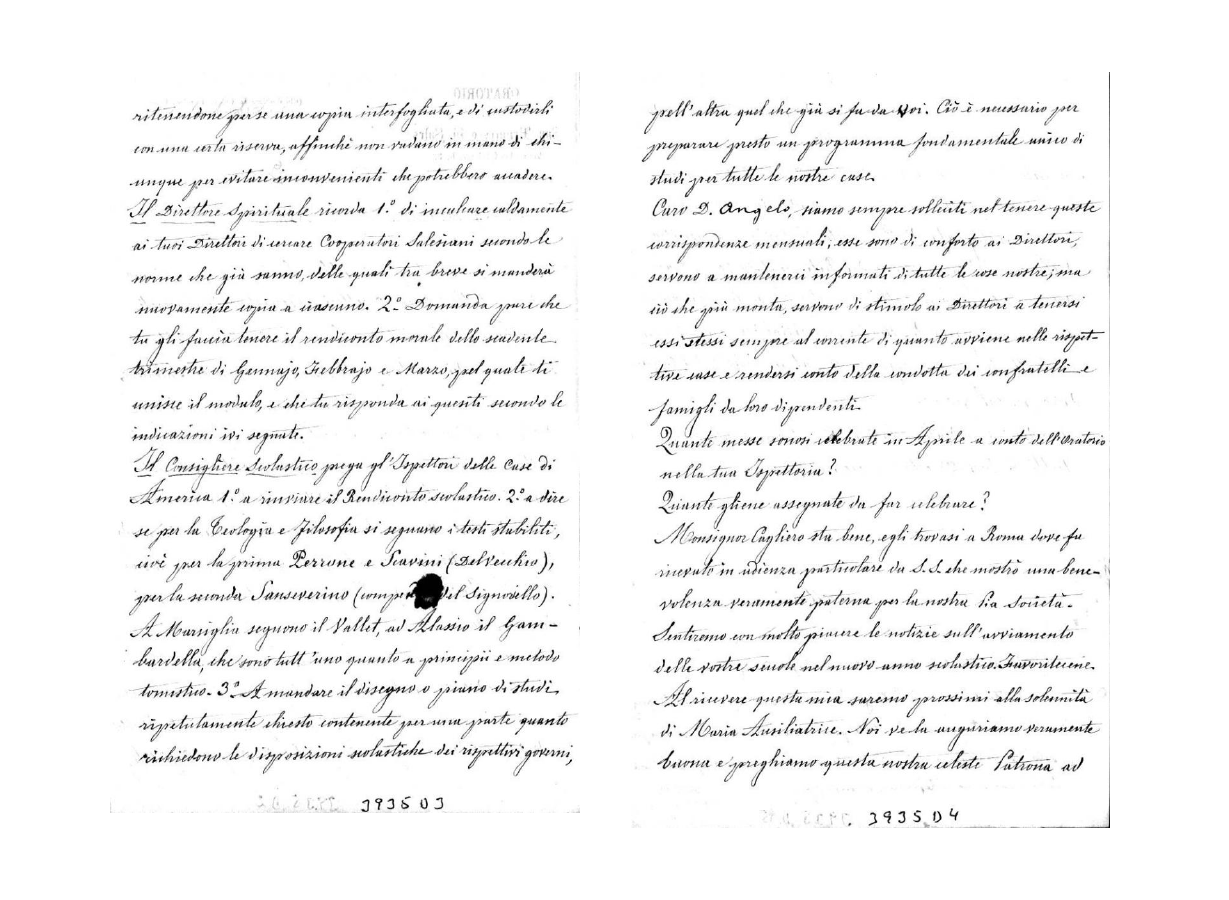 ORATORIO
ritenendone per se una copia interfogliata, e di custodirli
con una certa riserva, affinchè non vadano in mano di chi-
unque per evitare inconvenienti che potrebbero accadere.
Il Direttore Spirituale ricorda 1.º di inculcare caldamente
ai tuoi Direttori di cercare Cooperatori Salesiani secondo le
norme che già sanno, delle quali tra breve si manderà
nuovamente copia a ciascuno. 2.º Domanda pure che
tu gli faccia tenere il rendiconto morale dello scadente
trimestre di Gennajo, Febbrajo e Marzo, pel quale ti
unisce il modulo, e che tu risponda ai quesiti secondo le
indicazioni ivi segnate.
Il Consigliere Scolastico prega gl'Ispettori delle Case di
America 1.º a rinviare il Rendiconto scolastico. 2.º a dire
se per la Teologia e Filosofia si seguano i testi stabiliti,
cioè per la prima Perrone e Scavini (Delvecchio),
per la seconda Sanseverino (compe del Signoriello).
A Marsiglia seguono il Vallet, ad Alassio il Gam-
bardella, che sono tutt'uno quanto a principii e metodo
tomistico. 3.º A mandare il disegno o piano di studi,
ripetutamente chiesto contenente per una parte quanto
richiedono le disposizioni scolastiche dei rispettivi governi,
3935 D3
pell'altra quel che già si fa da Voi. Ciò è necessario per
preparare presto un programma fondamentale unico di
studi per tutte le nostre case.
Caro D. Angelo, siamo sempre solleciti nel tenere queste
corrispondenze mensuali; esse sono di conforto ai Direttori,
servono a mantenerci informati di tutte le cose nostre; ma
ciò che più monta, servono di stimolo ai Direttori a tenersi
essi stessi sempre al corrente di quanto avviene nelle rispet-
tive case e rendersi conto della condotta dei confratelli e
famigli da loro dipendenti.
Quante messe sonosi celebrate in Aprile a conto dell'Oratorio
nella tua Ispettoria?
Quante gliene assegnate da far celebrare?
Monsignor Cagliero sta bene, egli trovasi a Roma dove fu
ricevuto in udienza particolare da S.S. che mostrò una bene-
volenza veramente paterna per la nostra Pia Società.
Sentiremo con molto piacere le notizie sull'avviamento
delle vostre scuole nel nuovo anno scolastico. Favoritecene.
Al ricevere questa mia saremo prossimi alla solennità
di Maria Ausiliatrice. Noi ve la auguriamo veramente
buona e preghiamo questa nostra celeste Patrona ad
3935 D4